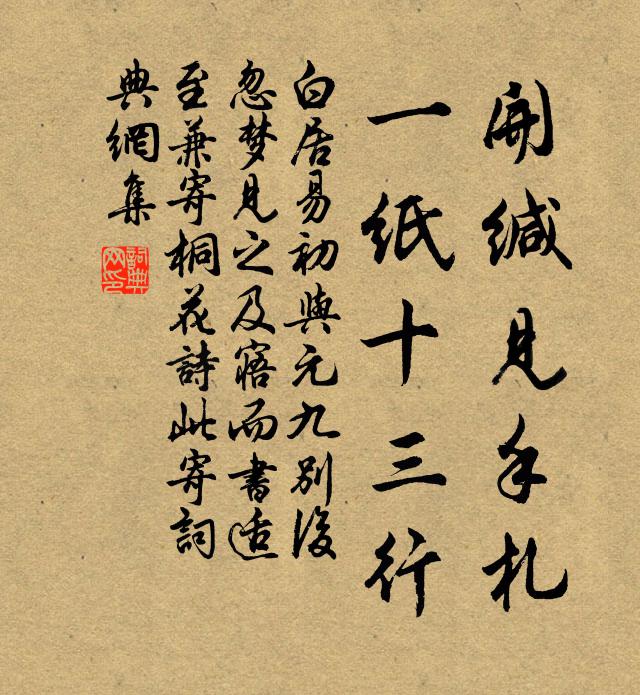 開緘見手札
一紙十三行
白居易初與元九別後
忽梦見之及寤而書适
至兼寄桐花詩此寄詞
典網集
詞典
网印